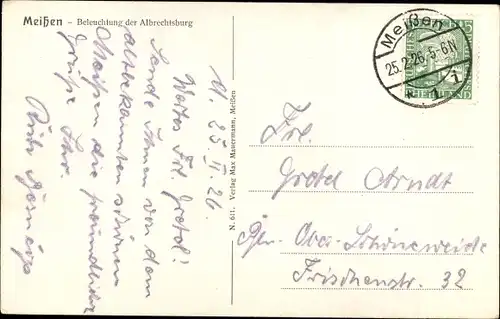 Meißen – Beleuchtung der Albrechtsburg
M. 25. II. 26.
Wertes Frl. Gretel!
Sende Ihnen von dem
altbekannten schönen
Meißen die freundlichsten
Grüße Ihr
N. 611. Verlag Max Mauermann, Meißen
Meißen
25.2.26. 5-6N
1
Frl.
Gretel Arndt
Bln. Ober-Schöneweide
Frischenstr. 32